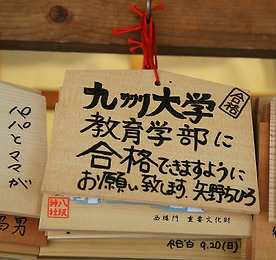 九州大学
合格
教育学部に
合格できますように
お願い致します 矢野ちひろ
八坂
神社
西楼門 重要文化財
9.20(日)
パパとママが
男